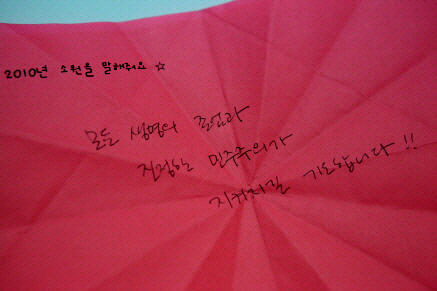 2010년 소원을 말해줘요 ☆
모든 생명의 존엄과
진정한 민주주의가
지켜지길 기도합니다!!